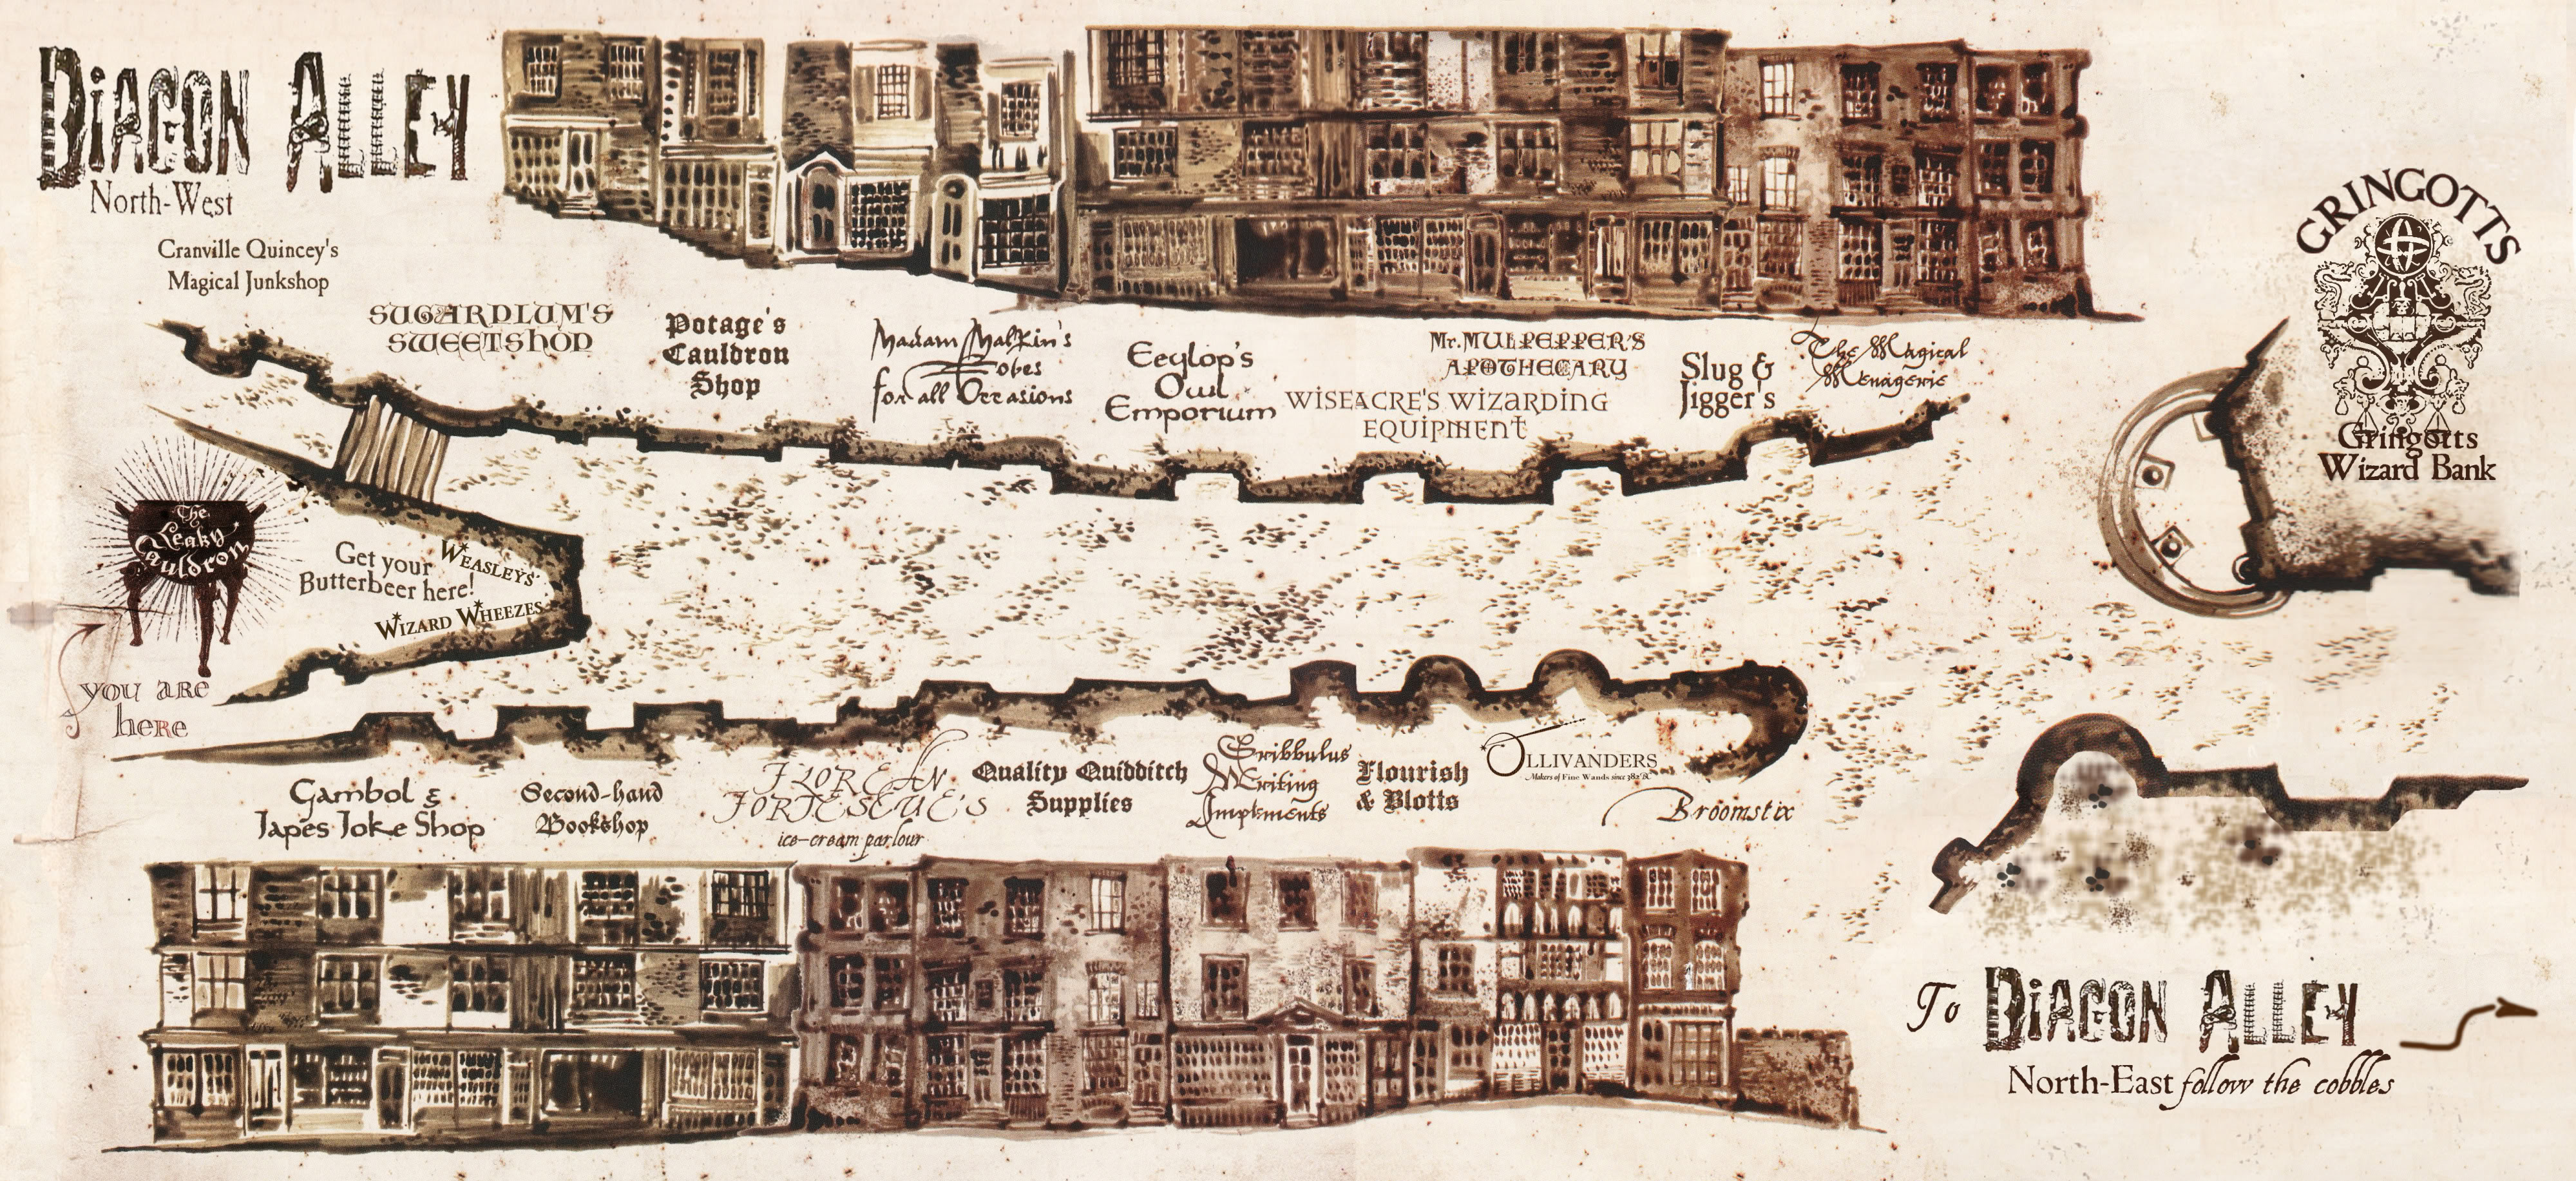 DIAGON ALLEY
North-West
Cranville Quincey's
Magical Junkshop
SUGARPLUM'S
SWEETSHOP
Potage's
Cauldron
Shop
Madam Malkin's
Robes
for all Occasions
Eeylop's
Owl
Emporium
WISEACRE'S WIZARDING
EQUIPMENT
Mr. MULPEPPER'S
APOTHECARY
Slug &
Jigger's
The Magical
Menagerie
GRINGOTTS
Gringotts
Wizard Bank
The
Leaky
Cauldron
Get your
Butterbeer here!
WEASLEYS'
WIZARD WHEEZES
you are
here
Gambol &
Japes Joke Shop
Second-hand
Bookshop
FLOREAN
FORTESCUE'S
ice-cream parlour
Quality Quidditch
Supplies
Scribbulus
Writing
Implements
Flourish
& Blotts
OLLIVANDERS
Makers of Fine Wands since 382 BC
Broomstix
To DIAGON ALLEY
North-East follow the cobbles